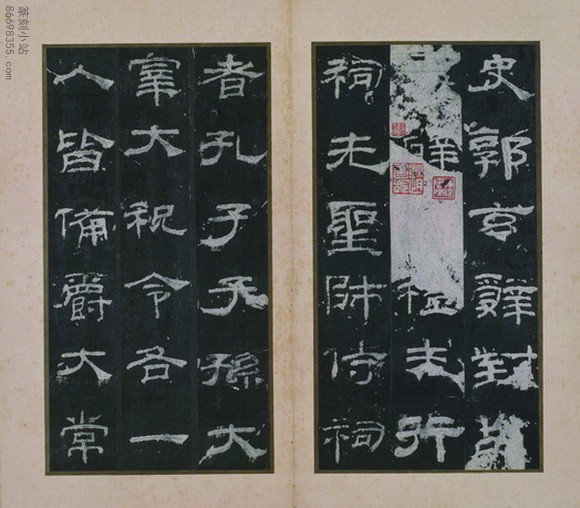 史郭玄辭對故
辟禮未行
祠先聖師侍祠
者孔子子孫大
宰大祝令各一
人皆備爵大常
篆刻小站
86698355.com